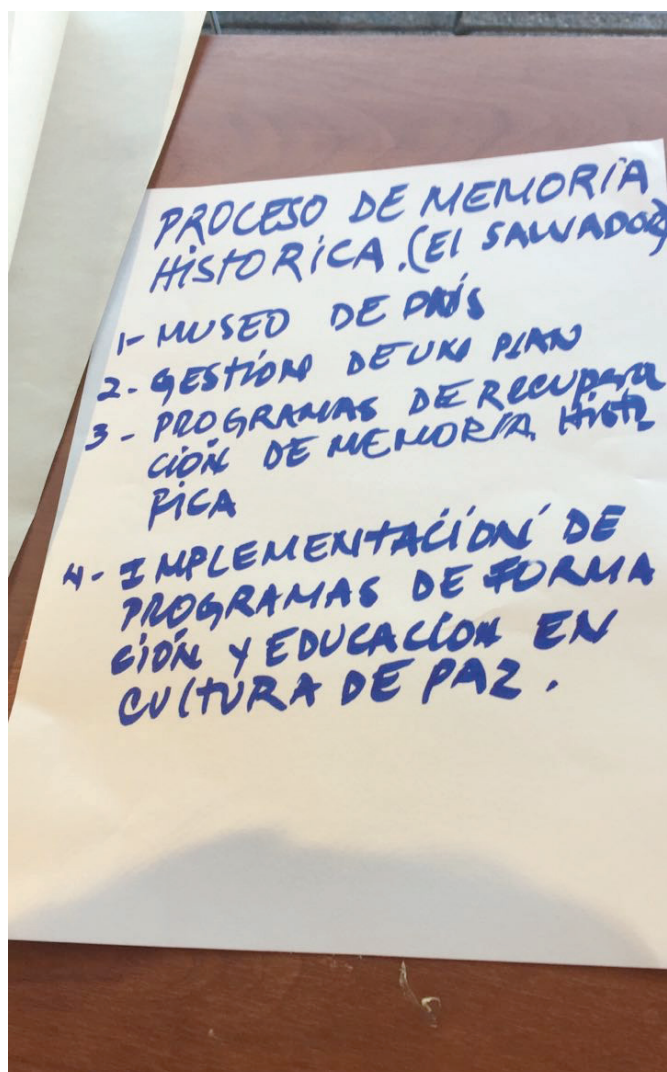 PROCESO DE MEMORIA
HISTORICA. (El SALVADOR)
1- MUSEO DE PAÍS
2- GESTIÓN DE UN PLAN
3- PROGRAMAS DE RECUPERA
CIÓN DE MEMORIA HISTÓ
RICA
4- IMPLEMENTACIÓN DE
PROGRAMAS DE FORMA
CIÓN Y EDUCACIÓN EN
CULTURA DE PAZ.